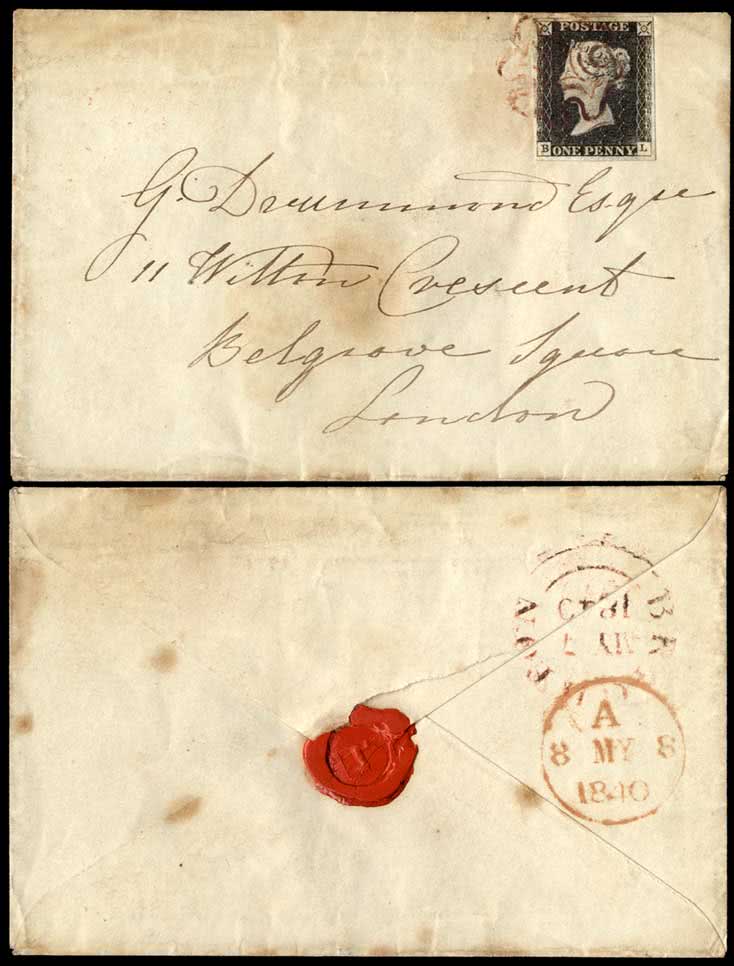 POSTAGE
B L
ONE PENNY
G. Drummond Esqre
11 Wilton Crescent
Belgrave Square
London
1840
MY 7
A
8 MY 8
1840